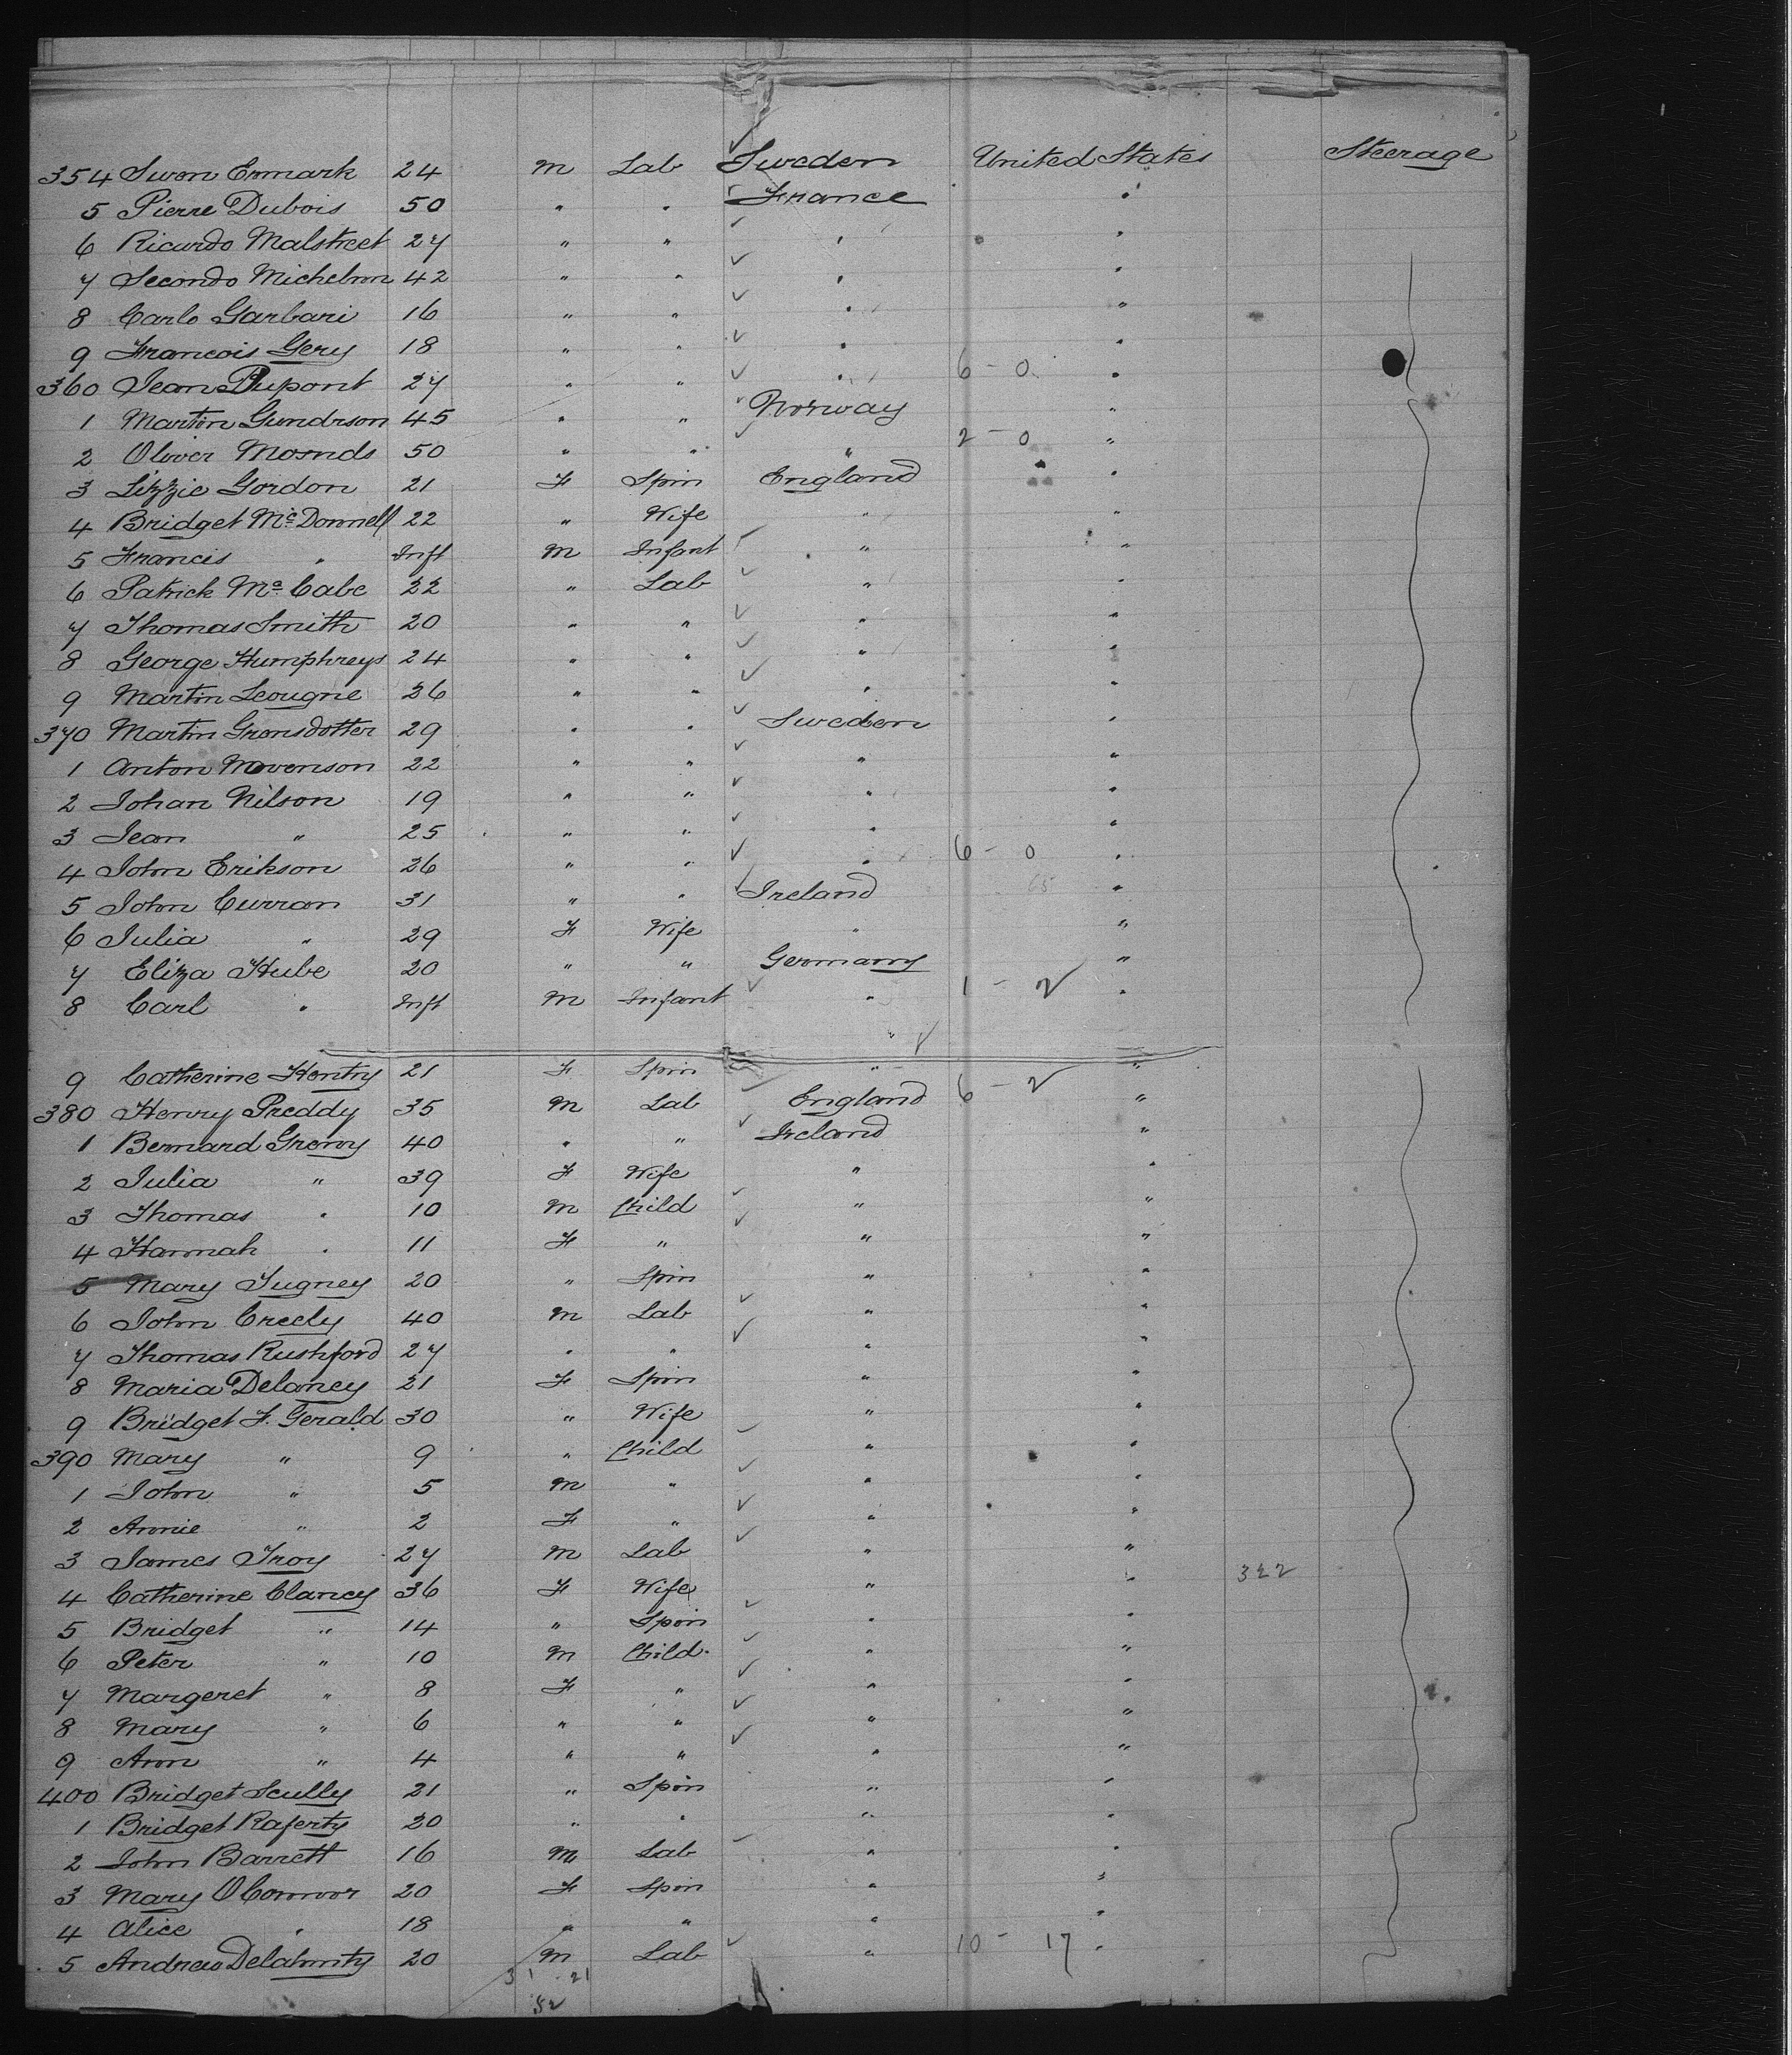 354 Swen Enmark 24 m Lab Sweden United States Steerage
5 Pierre Dubois 50 " " France "
6 Ricardo Malstreet 27 " " " "
7 Secondo Michelron 42 " " " "
8 Carlo Garbari 16 " " " "
9 Francois Gery 18 " " " "
360 Jean Dupont 27 " " " 6 - 0 "
1 Martin Gundrson 45 " " Norway "
2 Oliver 50 " " " 2 - 0 "
3 Lizzie Gordon 21 F Spin England "
4 Bridget McDonnell 22 " Wife " "
5 Francis " Inft m Infant " "
6 Patrick Mc Cabe 22 " Lab " "
7 Thomas Smith 20 " " " "
8 George Humphreys 24 " " " "
9 Martin Leougne 26 " " " "
370 Martin Gronsdotter 29 " " Sweden "
1 Anton 22 " " " "
2 Johan Nilson 19 " " " "
3 Jean " 25 " " " "
4 John Erikson 26 " " " 6 - 0 "
5 John Curran 31 " " Ireland 65 "
6 Julia " 29 F Wife " "
7 Eliza Hube 20 " " Germany "
8 Carl " Inft m Infant " 1 - 2 "
"
9 Catherine Hentry 21 F Spin " "
380 Henry Preddy 35 m Lab England 6 - 2 "
1 Bernard 40 " " Ireland "
2 Julia " 39 F Wife " "
3 Thomas " 10 m Child " "
4 Hannah " 11 F " " "
5 Mary Tugney 20 " Spin " "
6 John Creely 40 m Lab " "
7 Thomas Rushford 27 " " " "
8 Maria Delaney 21 F Spin " "
9 Bridget F. Gerald 30 " Wife " "
390 Mary " 9 " Child " "
1 John " 5 m " " "
2 Annie " 2 F " " "
3 James Troy 27 m Lab " "
4 Catherine Clancy 36 F Wife " " 322
5 Bridget " 14 " Spin " "
6 Peter " 10 m Child " "
7 Margeret " 8 F " " "
8 Mary " 6 " " " "
9 Ann " 4 " " " "
400 Bridget Scully 21 " Spin " "
1 Bridget Raferty 20 " " " "
2 John Barrett 16 m Lab " "
3 Mary OConnor 20 F Spin " "
4 Alice " 18 " " " "
5 Andrew Delahunty 20 m Lab " 10 - 17 "
31 - 21
52